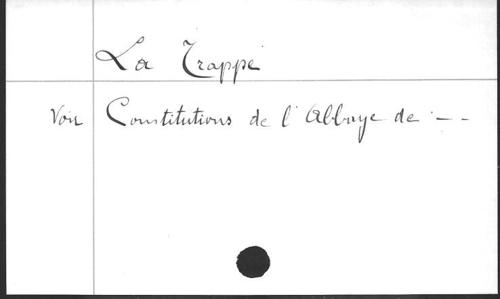 La Trappe
Voir Constitutions de l'Abbaye de : — —